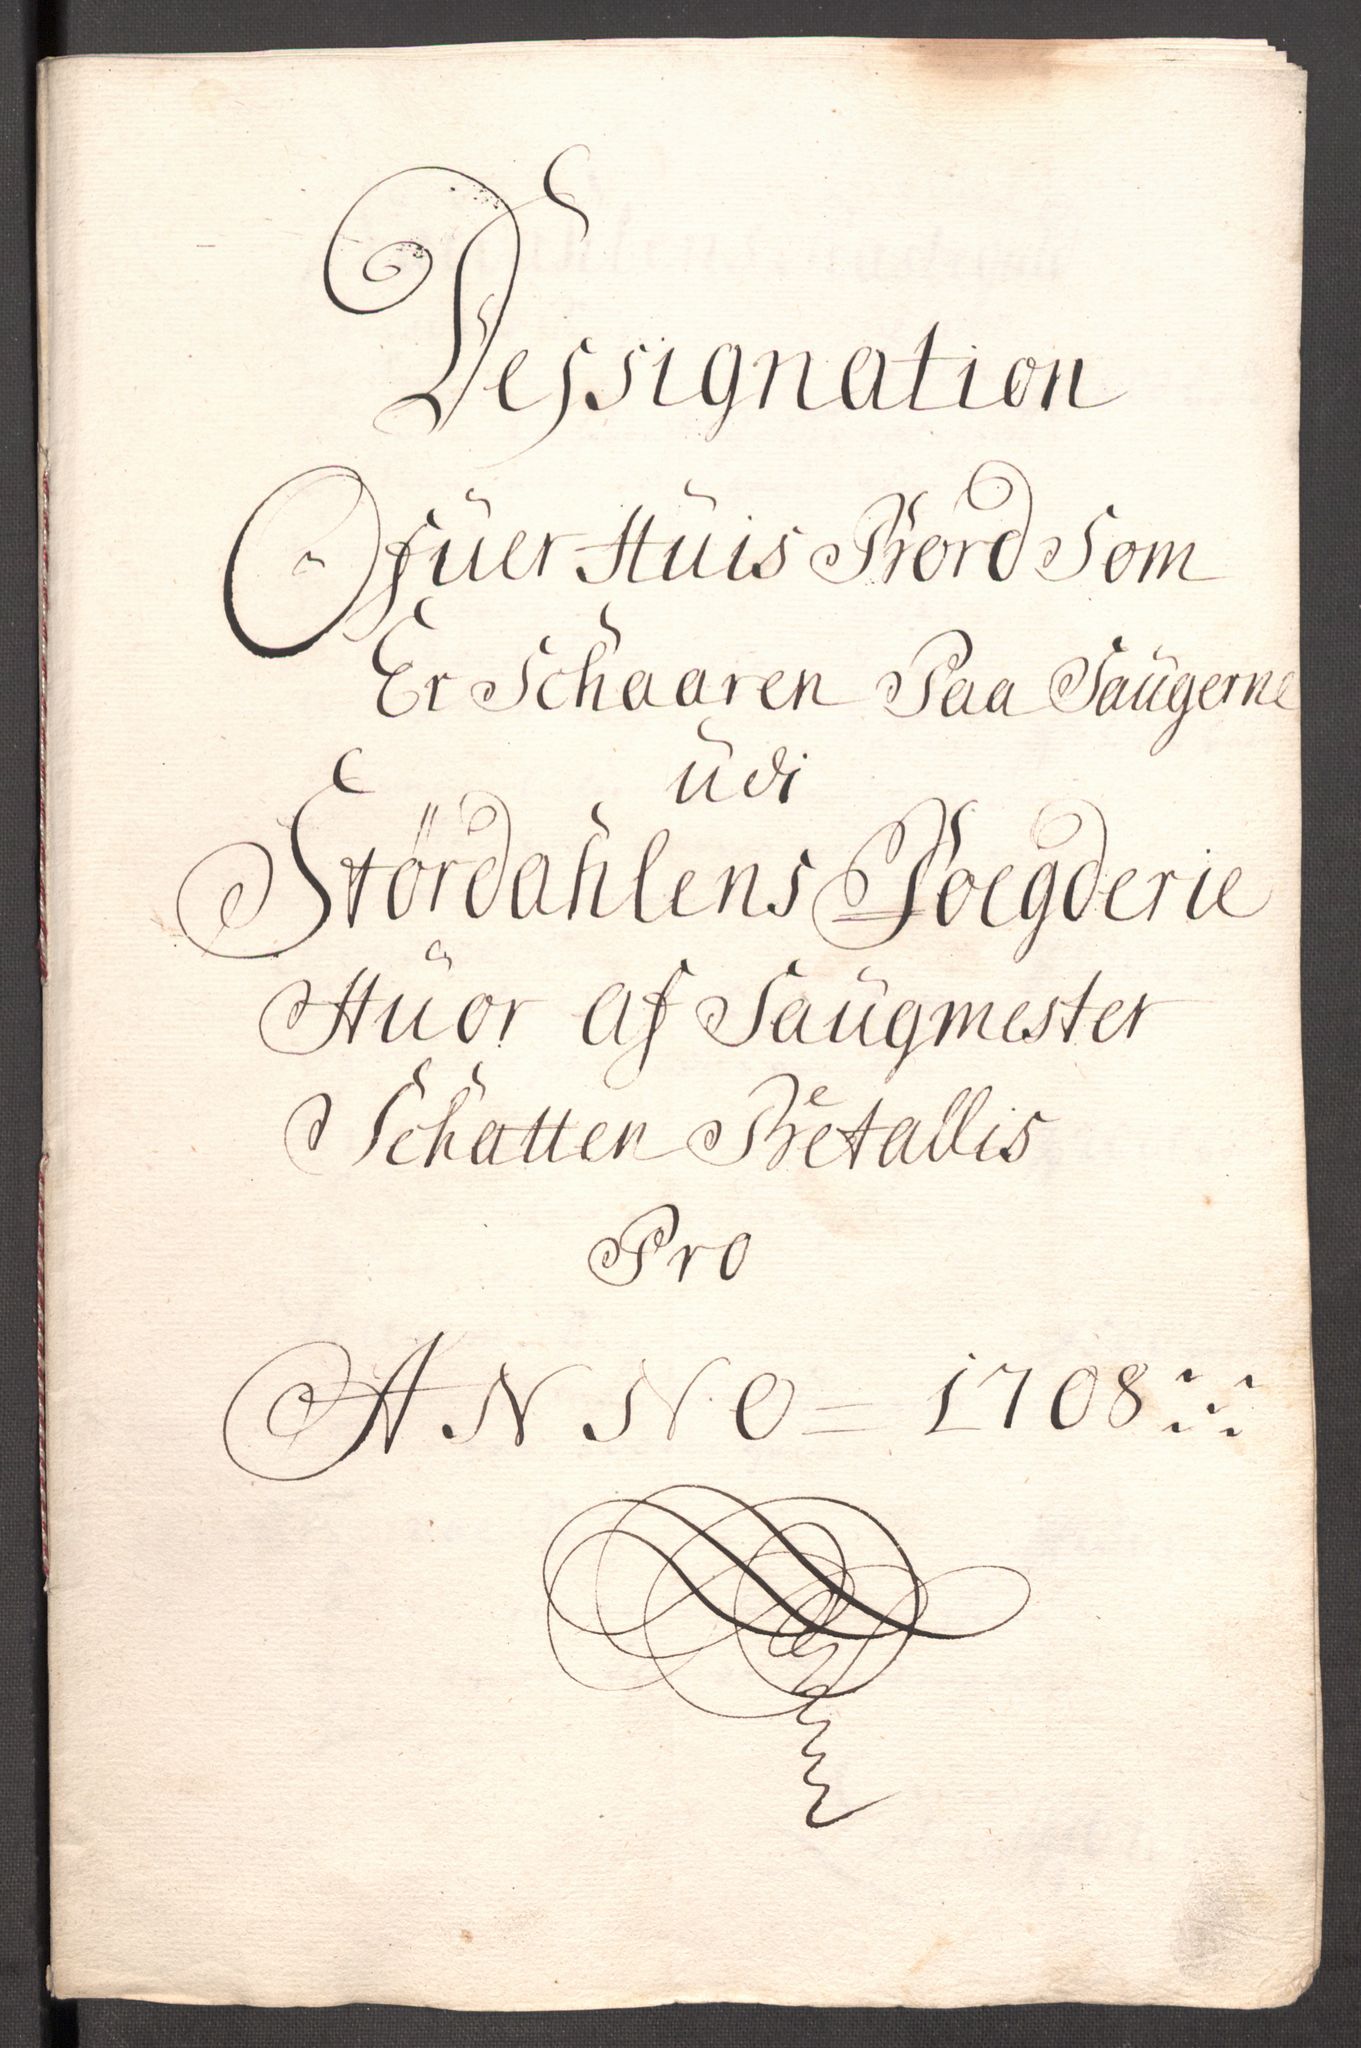 Dessignation
Ofüer Hüis Bord Som
Er Schaaren Paa Saügerne
üdi
Stördahlens Foegderie
Hüor af Saügmester
Schatten Betallis
Pro
ANNO = 1708